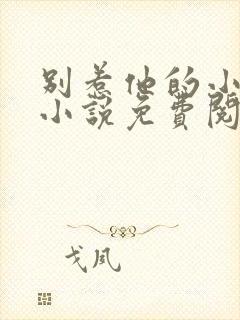 别惹他的小
小说免费阅
戈风